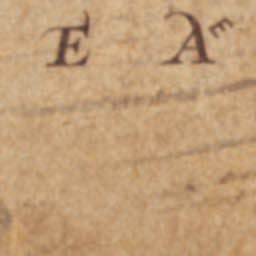 E A E